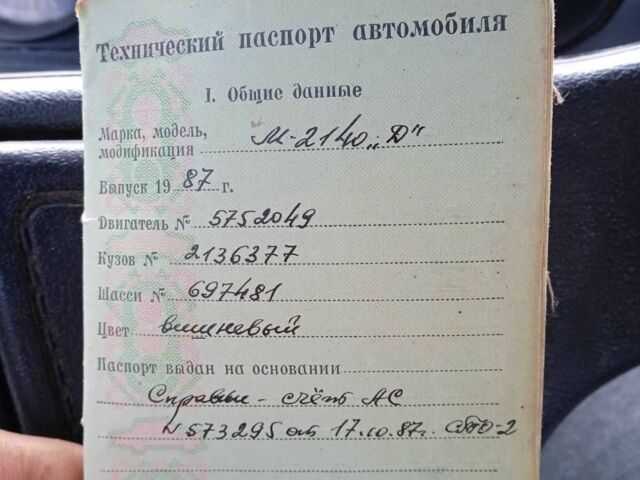 Технический паспорт автомобиля
I. Общие данные
Марка, модель,
модификация М-2140 „Д"
Выпуск 1987 г.
Двигатель № 5752049
Кузов № 2136377
Шасси № 697481
Цвет вишневый
Паспорт выдан на основании
Справки-счёт АС
N 573295 от 17.10.87г. СТО-2